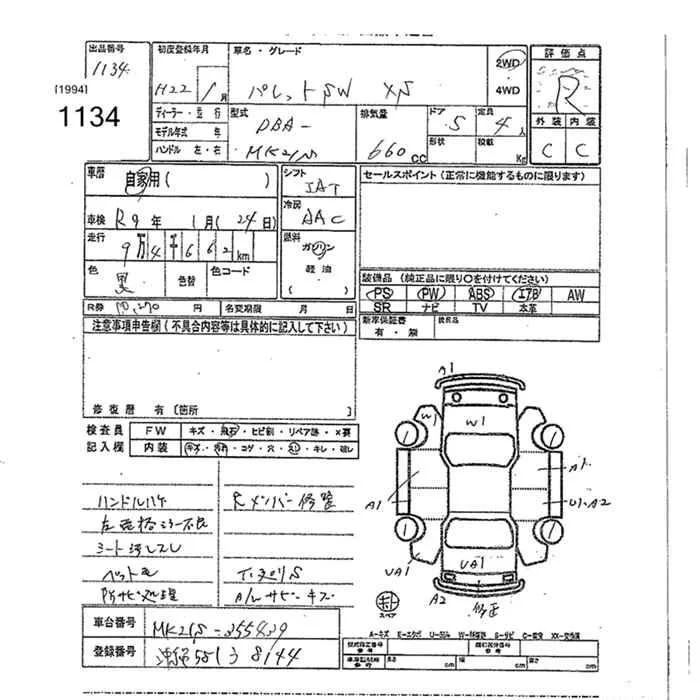 出品番号
1134
[1994]
1134
初度登録年月
H22 / 1月
車名・グレード
パレットSW XS
2WD
4WD
評価点
R
外装 内装
C C
ディーラー・並行
モデル年式 年
ハンドル 左・右
型式
DBA-
MK21S
排気量
660cc
ドア
5
形状
定員
4人
積載
Kg
車歴
自家用( )
シフト
IAT
セールスポイント(正常に機能するものに限ります)
車検 R9年 1月(24日)
冷房
AAC
走行
9万4千662km
燃料
ガソリン
軽油
色
黒
色替
色コード
装備品(純正品に限り○を付けてください)
PS PW ABS エアB AW
SR ナビ TV 本革
R券 10,270円
名変期限 月 日
新車保証書
有・無
注意事項申告欄(不具合内容等は具体的に記入して下さい)
修復歴 有〔箇所 〕
検査員
記入欄
FW キズ・飛石・ヒビ割・リペア跡・×要
内装 キズ・汚れ・コゲ・穴・スレ・キレ・破レ
A1
W1
W1
A1
A1
U1.A2
UA1
UA1
A2
修正
スペア
ハンドルハゲ
Rメンバー修正
シート汚レスレ
下廻りS
A/Wサビキズ
車台番号
MK21S-355439
登録番号
A-キズ E-エクボ U-凹み W-補修跡 S-サビ C-腐食 XX-交換済
長さ cm 幅 cm 高さ cm